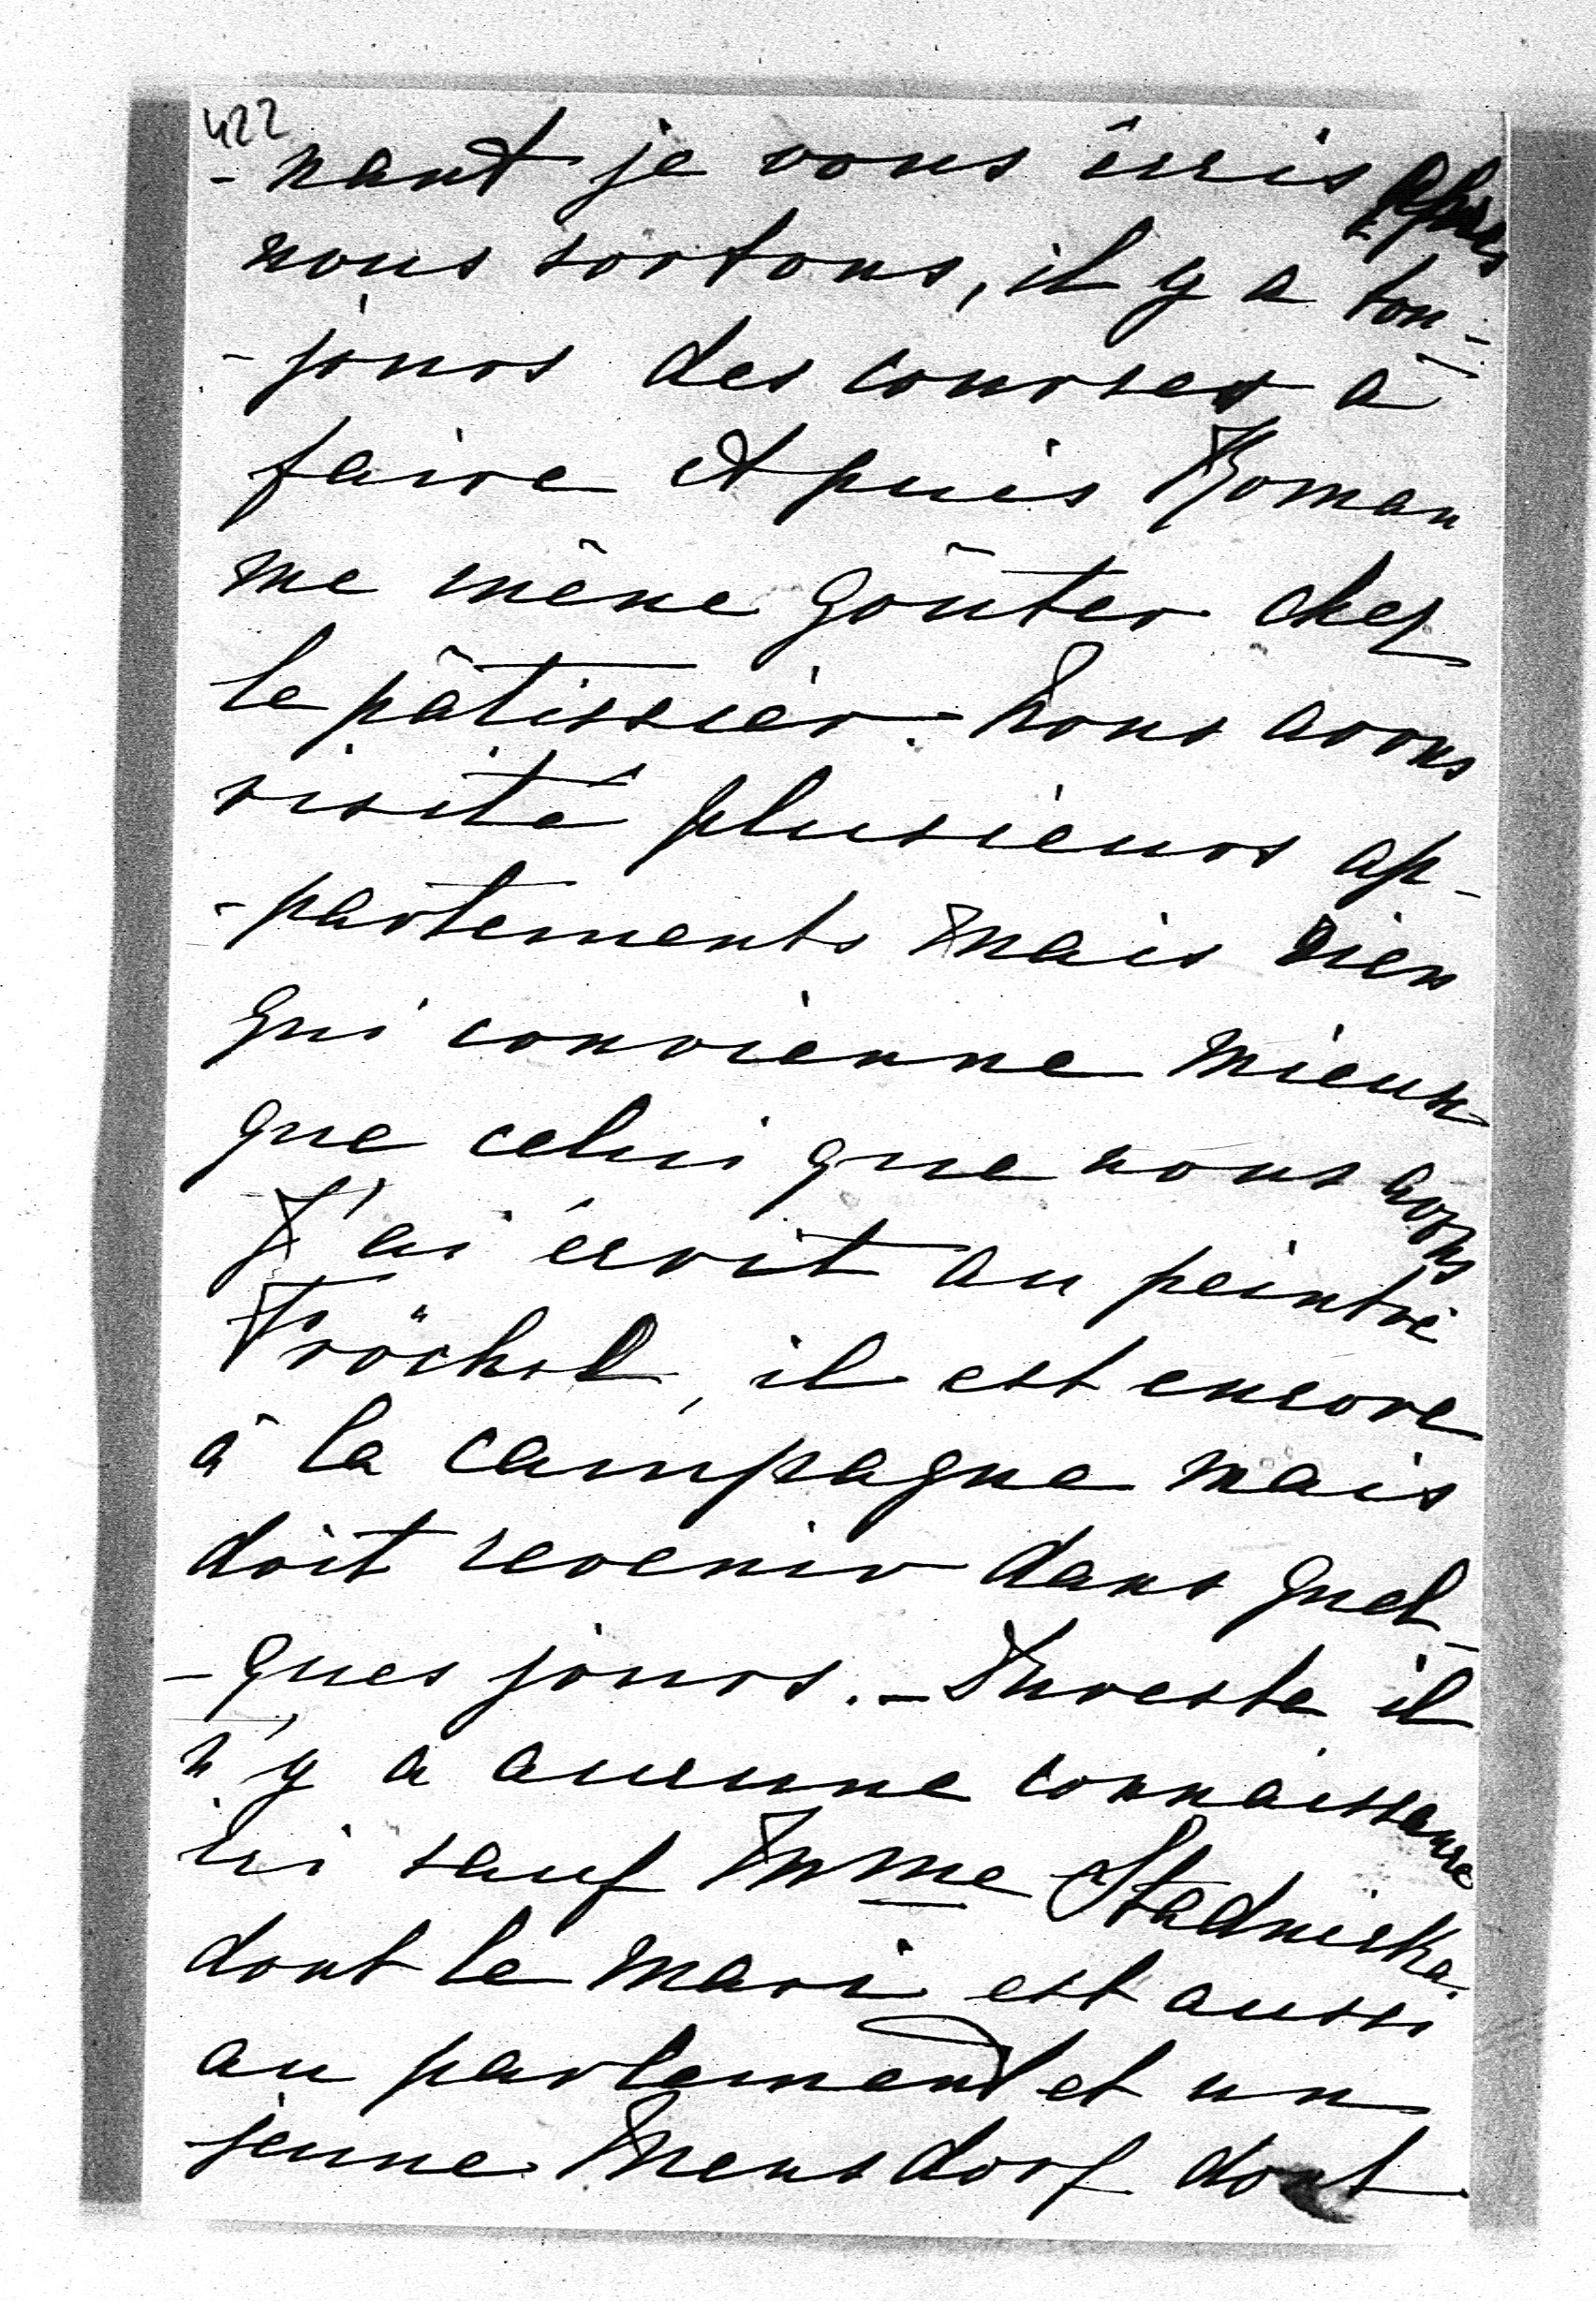 422
- nant je vous écris après
nous sortons, il y a tou-
- jours des courses à
faire et puis Roman
me mène goûter chez
le pâtissier. - Nous avons
visité plusieurs ap-
- partements mais rien
qui convienne mieux
que celui que nous avons
J'ai écrit au peintre
Fröschl, il est encore
à la campagne mais
doit revenir dans quel-
- ques jours. - Dureste il
n'y a aucune connaissance
ici sauf Mme Stadnicka
dont le mari est aussi
au parlement et un
jeune Mensdorf dont